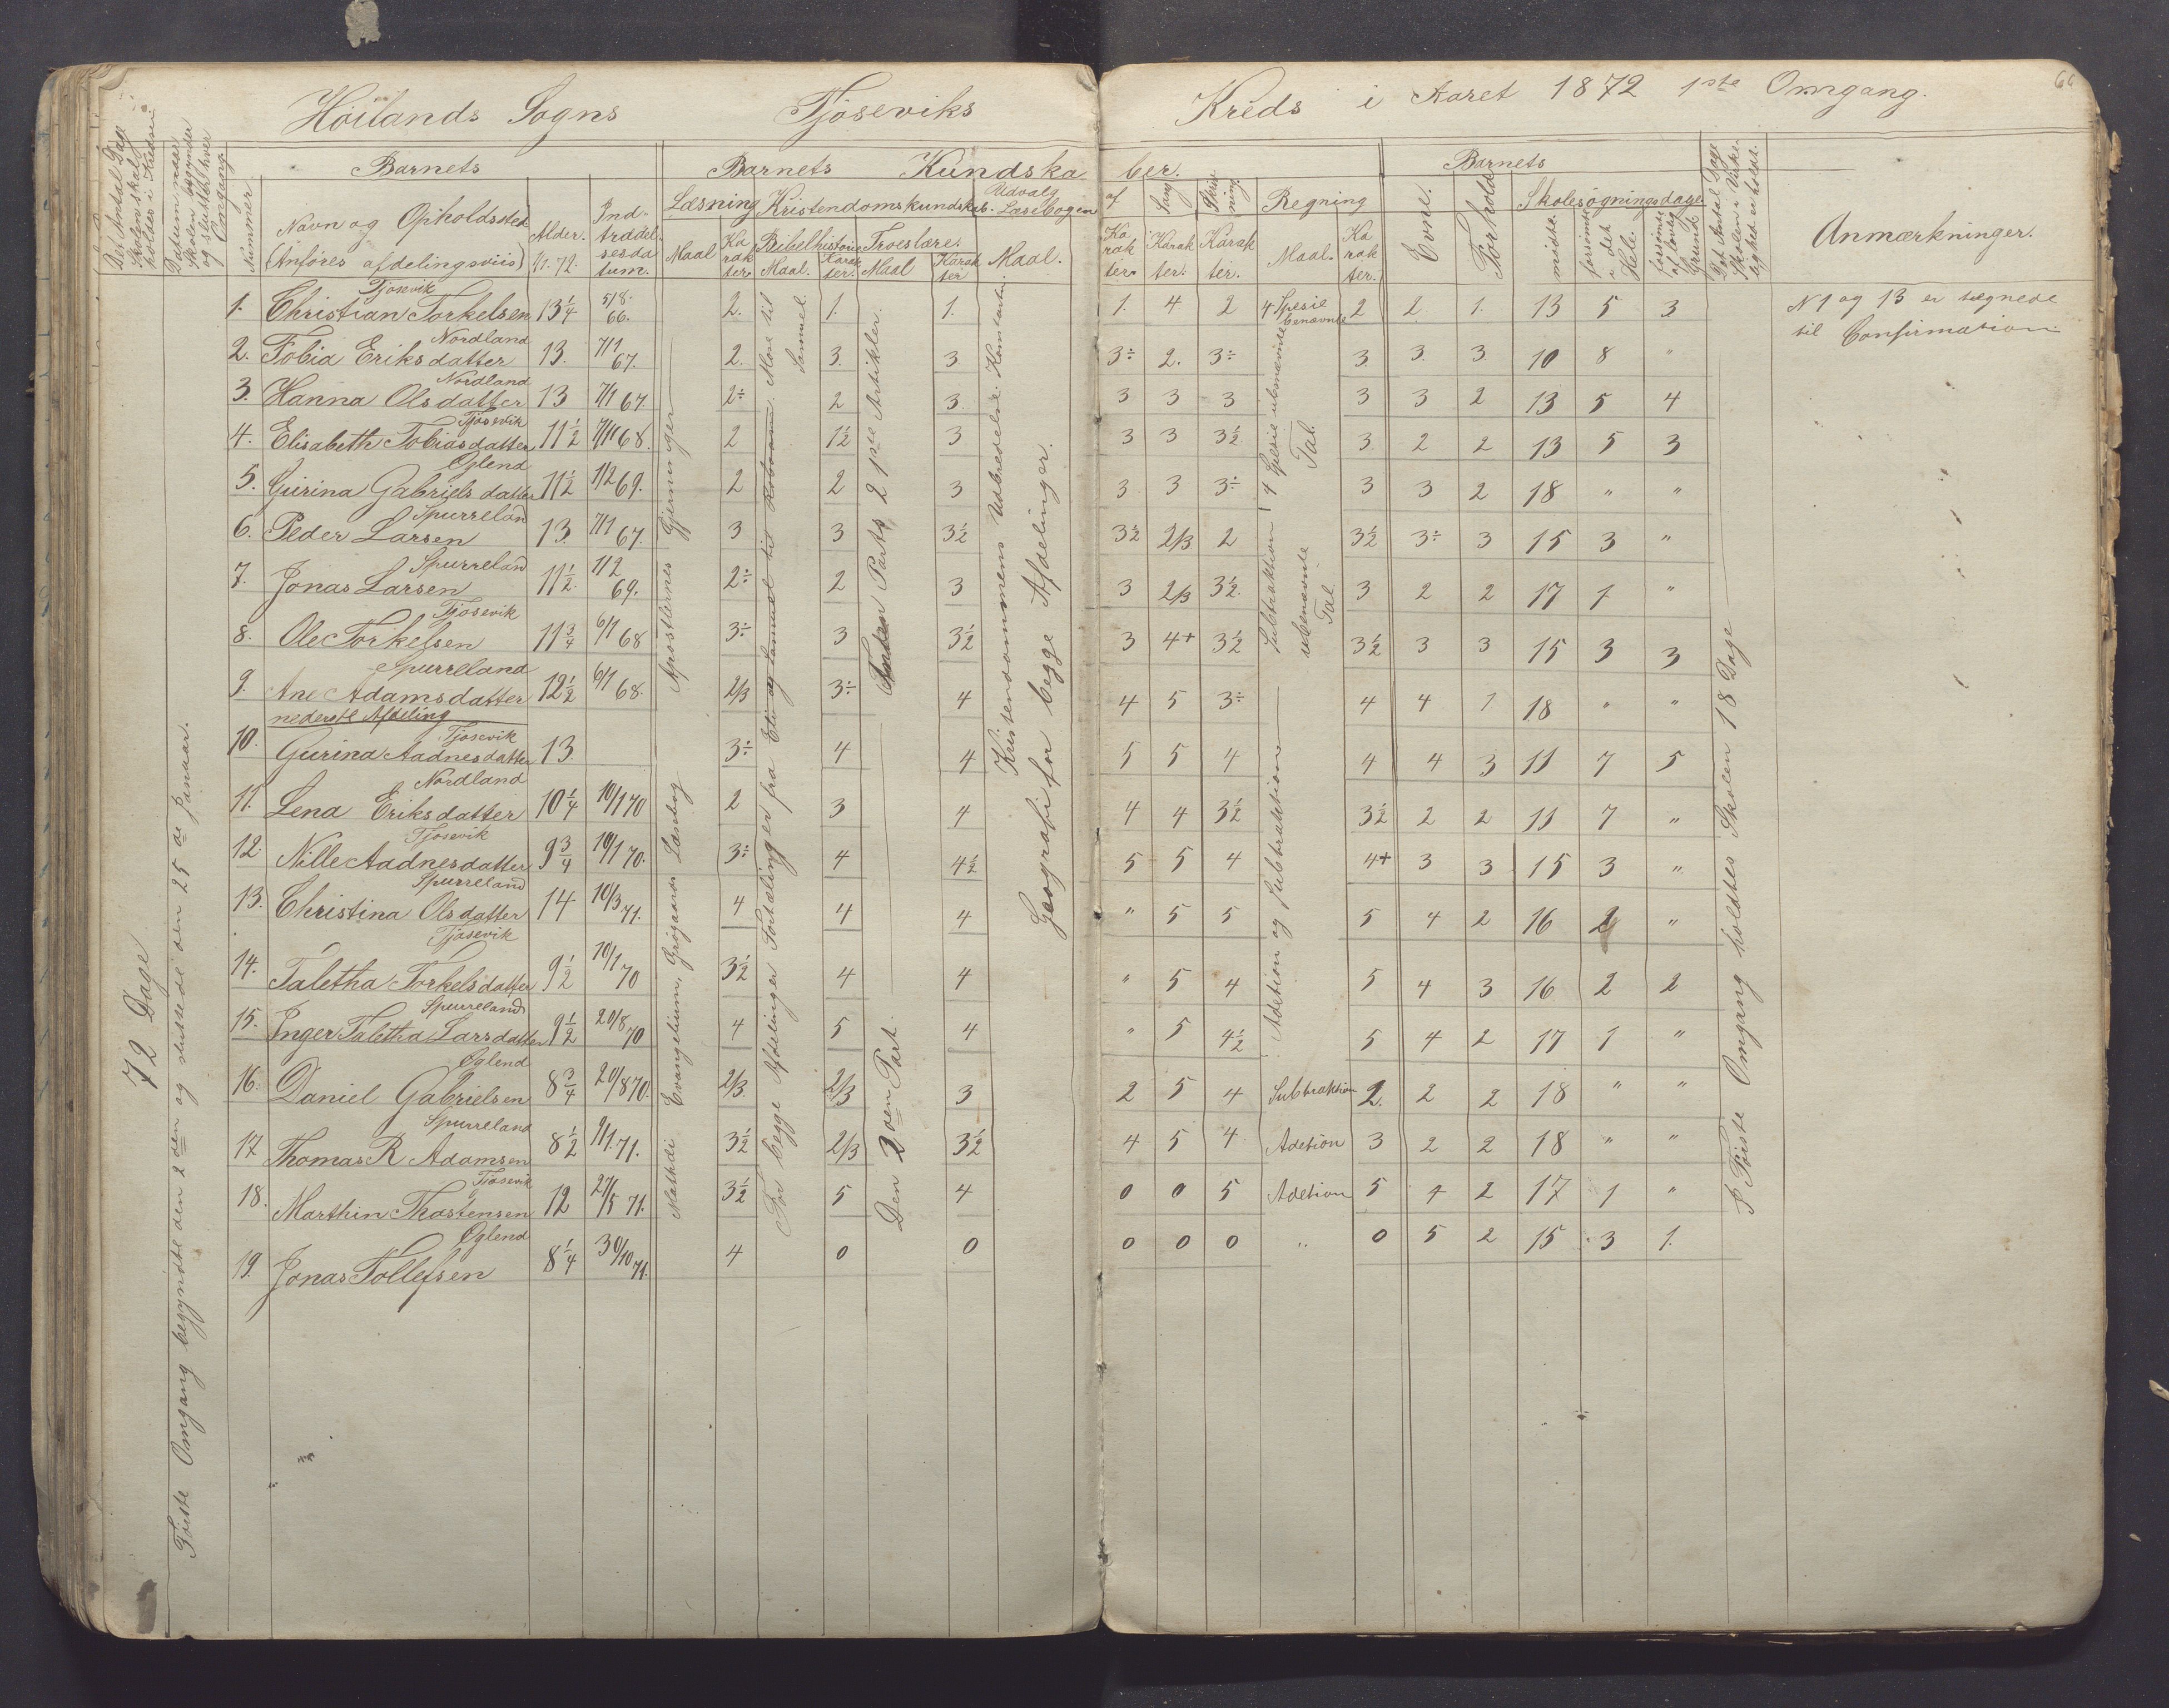 Höilands Sogns Tjöseviks Kreds i Aaret 1872 1ste Omgang.
66
Det Antal Dage Skolen skal holdes i Kredsen
Datum naar Skolen begynder og sluttes hver Omgang.
Nummer.
Barnets
Navn og Opholdssted
(Anföres afdelingsviis)
Alder. 1/1. 72.
Indtrædelsesdatum.
Barnets Kundskaber.
Læsning
Maal
Karakter.
Kristendomskundskab.
Bibelhistorie
Maal.
Karakter.
Troeslære.
Maal
Karakter
Udvalg af Læsebogen
Maal.
Karakter
Sang
Karakter.
Skrivning.
Karakter.
Regning
Maal.
Karakter.
Barnets
Evne.
Forhold
Skolesøgningsdage
mödte.
forsömte i det Hele.
forsömte af lovlig Grund
Det Antal Dage Skolen i Virkelighed er holdt.
Anmærkninger.
72 Dage
Föiste Omgang begyndte den 2den og sluttede den 25de Januar.
1. Christian Torkelsen Tjosevik 13 1/4 5/8. 66. 2. 1. 1. 1. 4 2 4 Spesie benævnte 2 2. 1. 13 5 3
2. Tobia Eriksdatter Nordland 13. 7/1 67. 2. 3. 3 3÷ 2. 3÷ 3 3. 3. 10 8 "
3. Hanna Olsdatter Nordland 13 7/1 67. 2÷ 2 3 3 3 3 3 3 2 13 5 4
4. Elisabeth Tobiasdatter Tjosevik 11 1/2 7/11 68. 2 1 1/2 3 3 3 3 1/2 3. 2 2 13 5 3
5. Gurina Gabrielsdatter Oglend 11 1/2 1/2 69. 2 2 3 3 3 3÷ 3 3 2 18 " "
6. Peder Larsen Spurreland 13. 7/1 67. 3 3 3 1/2 3 1/2 2/3 2 3 1/2 3÷ 3 15 3 "
7. Jonas Larsen Spurreland 11 1/2. 1/2 69. 2÷ 2 3 3 2/3 3 1/2. 3 2 2 17 1 "
8. Ole Torkelsen Tjosevik 11 3/4 6/1 68 3÷ 3 3 1/2 3 4+ 3 1/2 3 1/2 3 3 15 3 3
9. Ane Adamsdatter Spurreland 12 1/2 6/1 68. 2/3 3÷ 4 4 5 3÷ 4 4 1 18 " "
nederste Afdeling
10. Gurina Aadnesdatter Tjosevik 13 3÷ 4 4 5 5 4 4 4 3 11 7 5
11. Lena Eriksdatter Nordland 10 1/4 10/1 70 2 3 4 4 4 3 1/2 3 1/2 2 2 11 7 "
12. Nille Aadnesdatter Tjosevik 9 3/4 10/1 70. 3÷ 4 4 1/2 5 5 4 4+ 3 3 15 3 "
13. Christina Olsdatter Spurreland 14 10/3 71. 4 4 4 " 5 5 5 4 2 16 2 "
14. Taletha Torkelsdatter Tjosevik 9 1/2 10/1 70 3 1/2 4 4 " 5 4 5 4 3 16 2 2
15. Inger Taletha Larsdatter Spurreland 9 1/2 20/8 70 4 5 4 " 5 4 1/2 5 4 2 17 1 "
16. Daniel Gabrielsen Oglend 8 3/4 20/8 70. 2/3. 2/3 3 2 5 4 Subtraktion 2. 2 2 18 " "
17 Thomas R Adamsen Spurreland 8 1/2 9/1. 71. 3 1/2 2/3 3 1/2 4 5 4 Adetion 3 2 2 18 " "
18. Marthin Thostensen Tjosevik 12 27/5 71. 3 1/2 5 4 0 0 5 Adetion 5 4 2 17 1 "
19. Jonas Tollefsen Oglend 8 1/4 30/10 71. 4 0 0 0 0 0 " 0 5 2 15 3 1.
Mathæi Evangelium, Grögaards Læsebog Apostlernes Gjerninger
For begge Afdelinger Fortælinger fra Eli og Samuel til Roboam. Mose til Samuel.
Anden Parts 2 1ste Artikler.
Den 2den Part.
Kristendommens Udbredelse. Konstantin.
Geografi for begge Afdelinger.
4 Spesie ubenævnte Tal.
Subtraktion i ubenævnte Tal
Adetion og Subtraktion
I Föiste Omgang holdtes Skolen 18 Dage
N 1 og 13 er tegnede
til Confirmation.